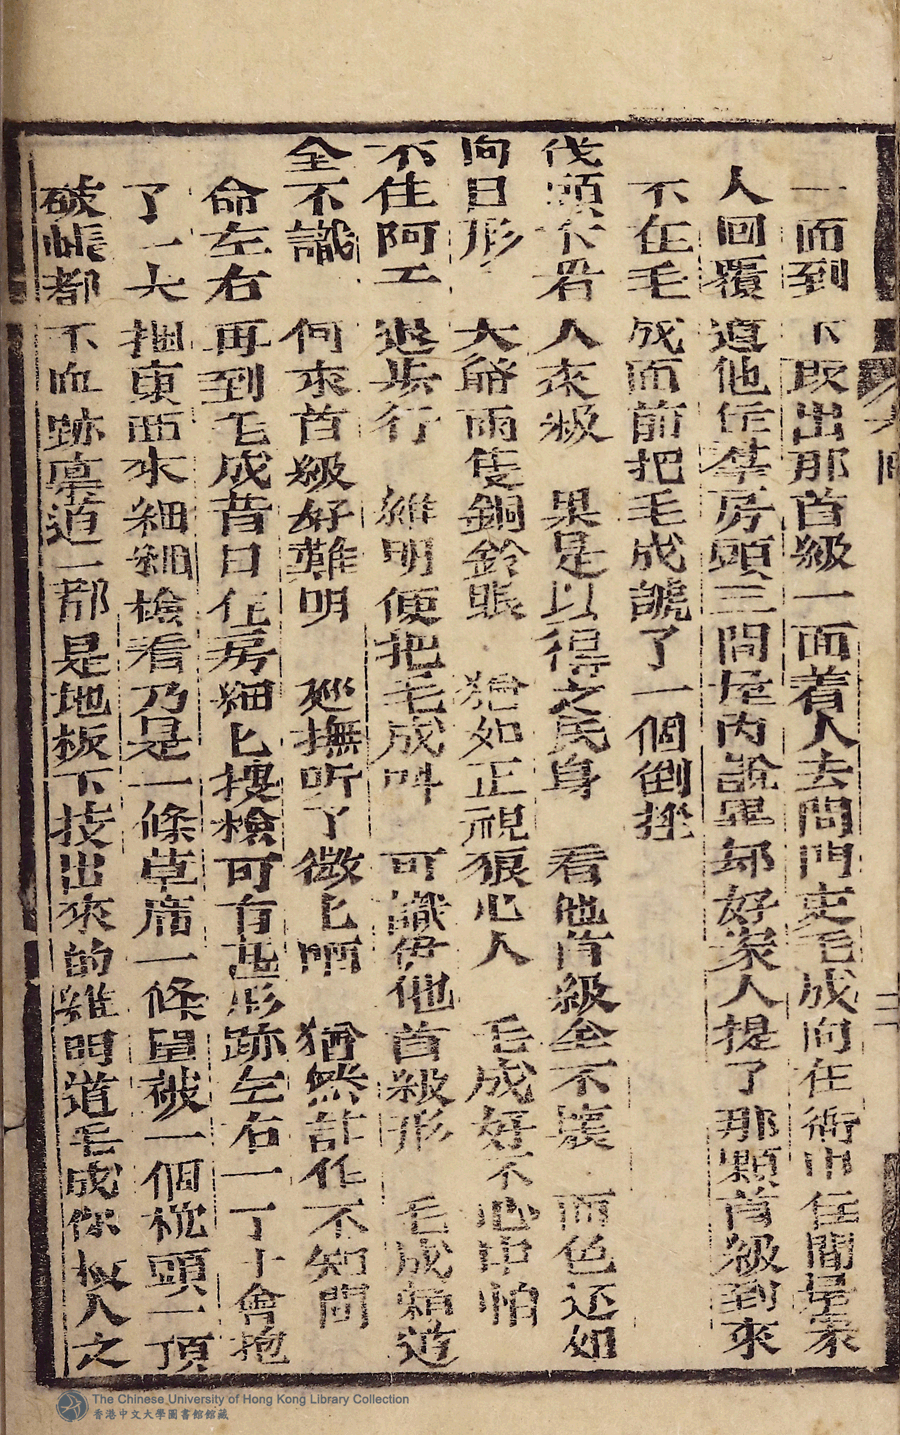 一面到下取出那首級一面着人去問門吏毛成向在衙中住間是家
人回覆道他住羣房頭三間屋內說畢却好家人提了那顆首級到來
不在毛成面前把毛成諕了一個倒挫
伐頭下若人來級 果是以得之民身 看他首級全不壞 面色还如
向日形 大觧兩隻銅鈴眼 猶如正視狠心人 毛成好不心中怕
不住阿工退步行 維明便把毛成呌 可識伊他首級形 毛成頼道
全不識 何來首級好難明 廵撫听了微匕哂 猶然詐作不知問
命左右再到毛成昔日住房細匕搜檢可有甚形跡左右一丁十會抱
了一大捆東西來細細檢看乃是一條草席一條單被一個枕頭一頂
破帳都不血跡稟道一都是地板下技出來的維明道毛成你切人之
The Chinese University of Hong Kong Library Collection
香港中文大學圖書館館藏